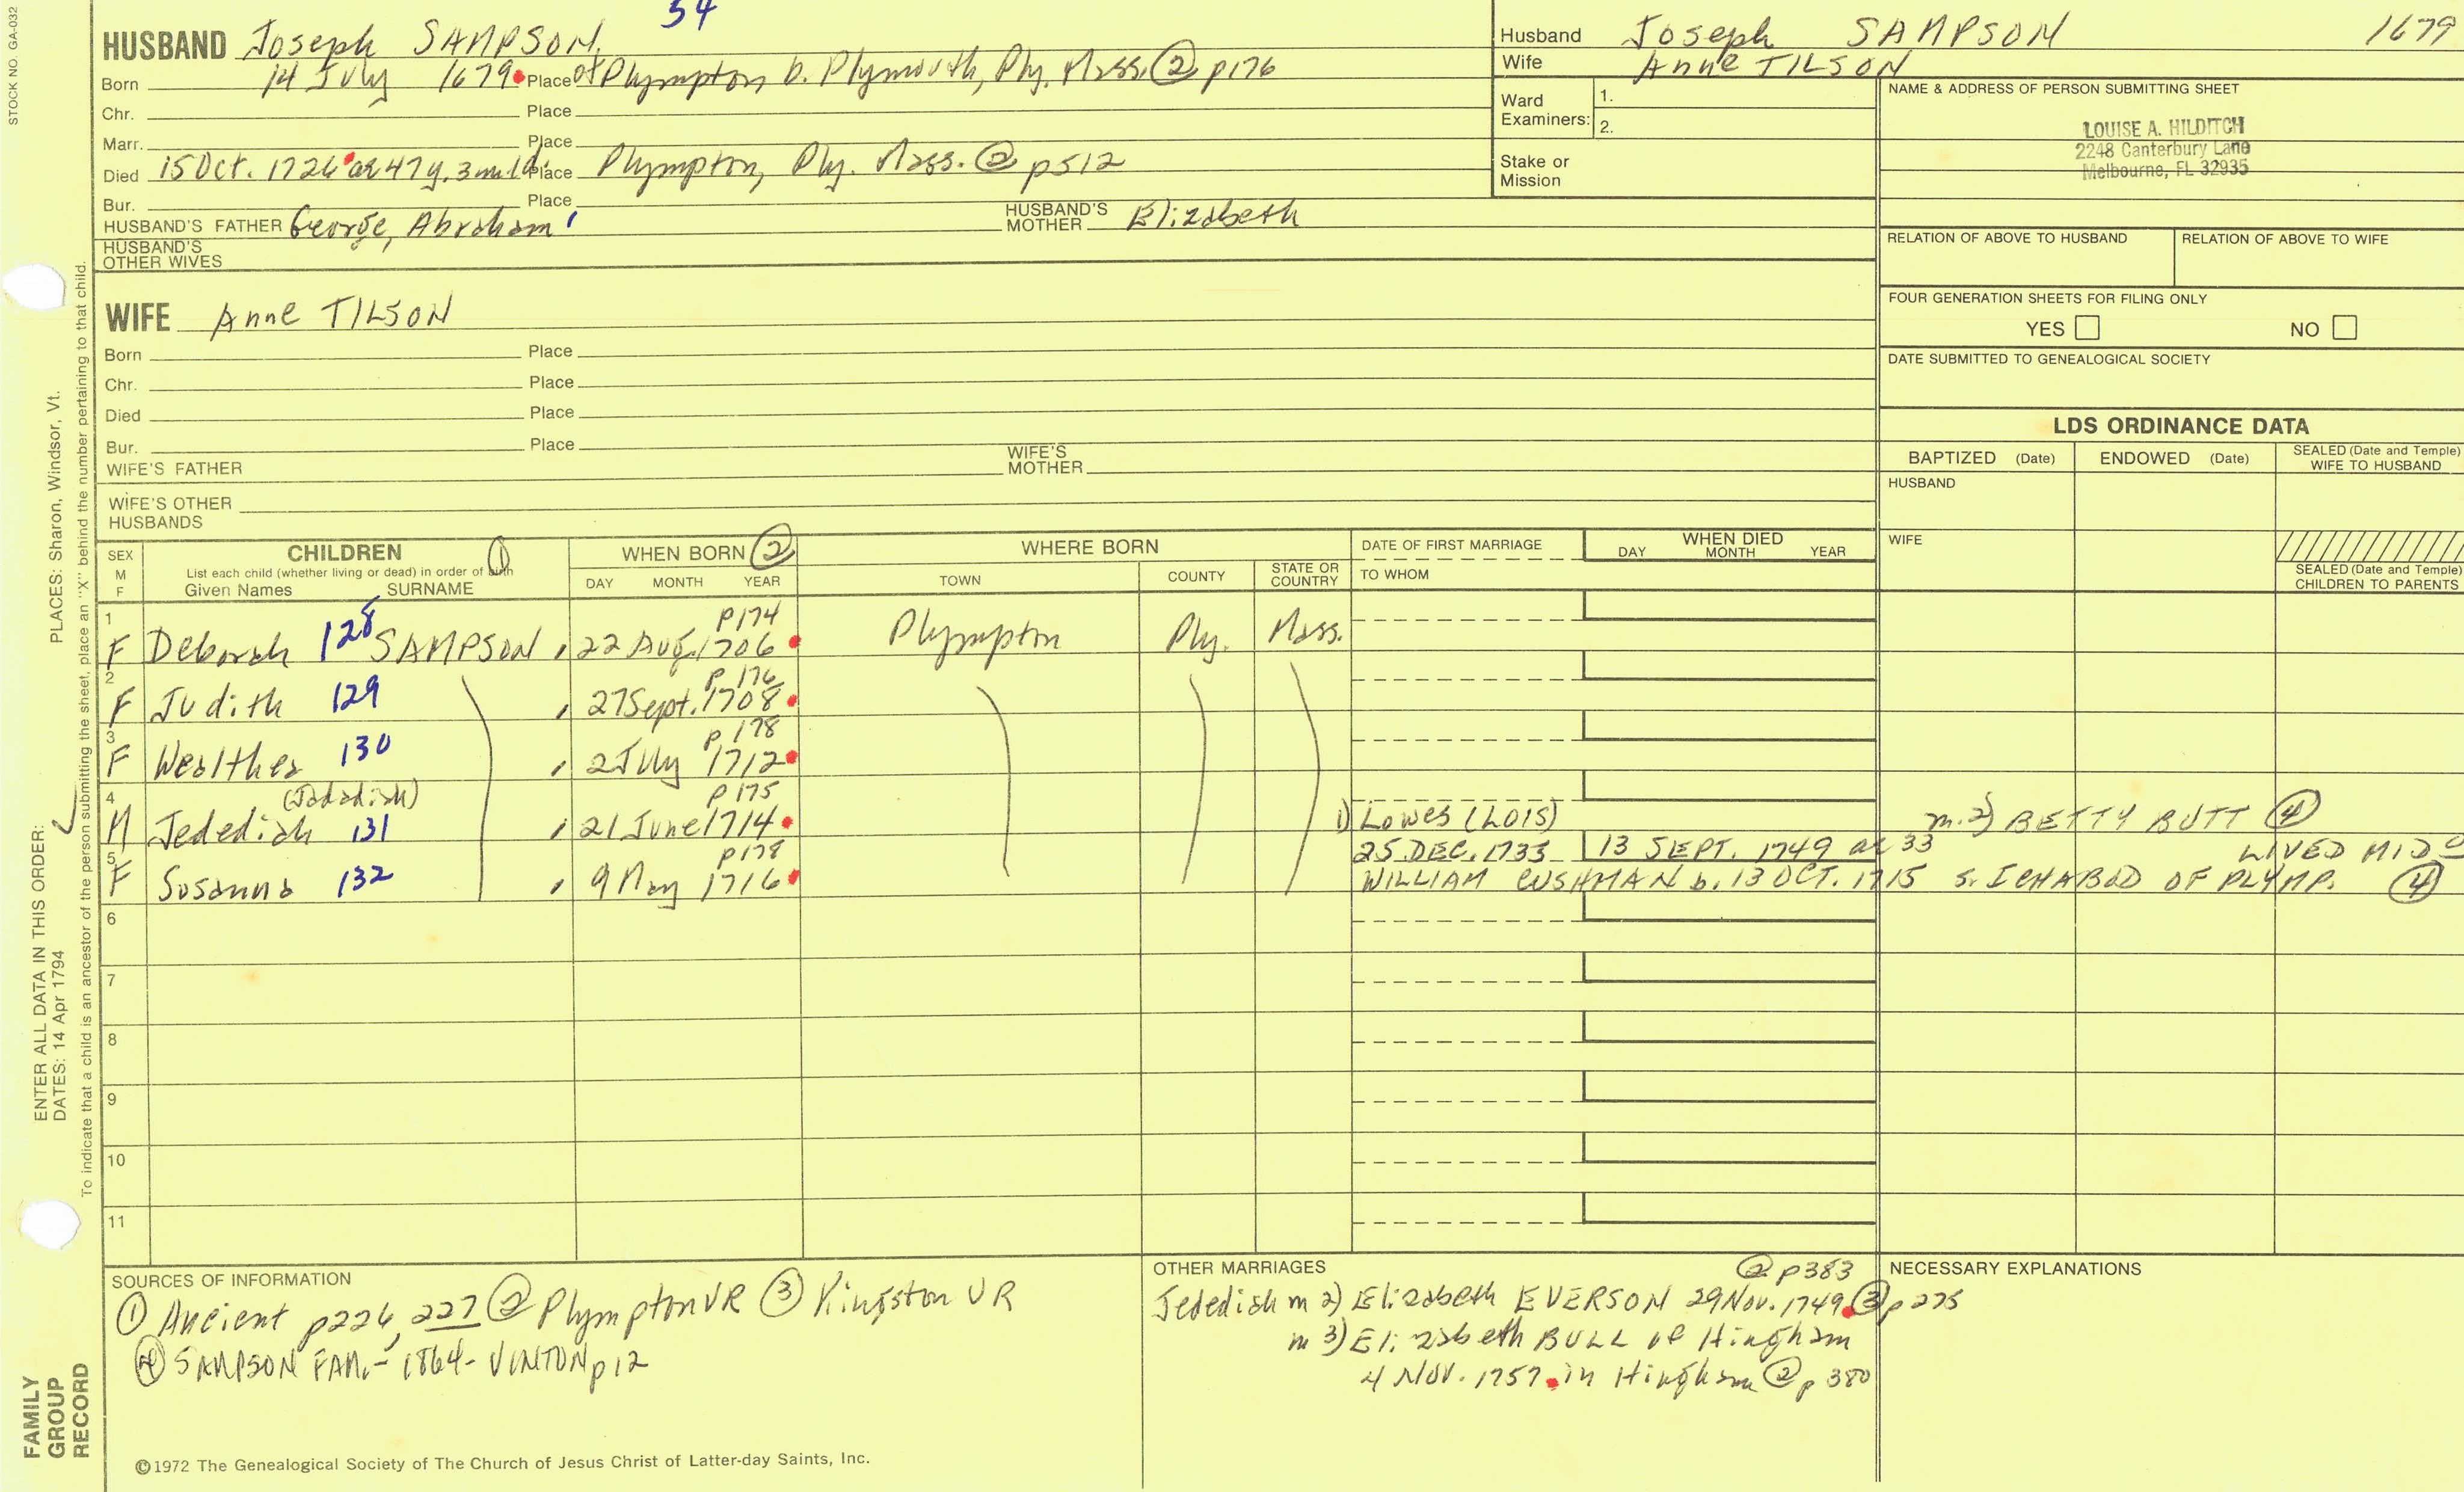 STOCK NO. GA-032
54
HUSBAND Joseph SAMPSON
Born 14 July 1679 Place of Plympton b. Plymouth, Ply. Mass. ② p176
Chr. Place
Marr. Place
Died 15 Oct. 1726 ae 47 y. 3 m 1 d Place Plympton, Ply. Mass. ② p512
Bur. Place
HUSBAND'S FATHER George, Abraham HUSBAND'S MOTHER Elizabeth
HUSBAND'S OTHER WIVES
Husband Joseph SAMPSON 1679
Wife Anne TILSON
Ward Examiners: 1.
2.
Stake or Mission
NAME & ADDRESS OF PERSON SUBMITTING SHEET
LOUISE A. HILDITCH
2248 Canterbury Lane
Melbourne, FL 32935
RELATION OF ABOVE TO HUSBAND RELATION OF ABOVE TO WIFE
FOUR GENERATION SHEETS FOR FILING ONLY
YES NO
DATE SUBMITTED TO GENEALOGICAL SOCIETY
WIFE Anne TILSON
Born Place
Chr. Place
Died Place
Bur. Place
WIFE'S FATHER WIFE'S MOTHER
WIFE'S OTHER HUSBANDS
LDS ORDINANCE DATA
BAPTIZED (Date) ENDOWED (Date) SEALED (Date and Temple) WIFE TO HUSBAND
HUSBAND
WIFE
SEALED (Date and Temple) CHILDREN TO PARENTS
SEX M F CHILDREN ① List each child (whether living or dead) in order of birth Given Names SURNAME
WHEN BORN ② DAY MONTH YEAR
WHERE BORN TOWN COUNTY STATE OR COUNTRY
DATE OF FIRST MARRIAGE TO WHOM
WHEN DIED DAY MONTH YEAR
p174
1 F Deborah 128 SAMPSON 22 Aug 1706 Plympton Ply. Mass.
p 176
2 F Judith 129 27 Sept. 1708
p 178
3 F Wealthea 130 2 July 1712
(Jadadiah) p 175
4 M Jedediah 131 21 June 1714 1) Lowes (LOIS) m. 2) BETTY BUTT ④
p178 25 DEC. 1733 13 SEPT. 1749 ae 33 LIVED
5 F Susanna 132 9 May 1716 WILLIAM CUSHMAN b. 13 OCT. 1715 s. ICHABOD OF PLYMP. ④
6
7
8
9
10
11
SOURCES OF INFORMATION
① Ancient p226, 227 ② Plympton VR ③ Kingston VR
④ SAMPSON FAM. - 1864 - VINTON p12
OTHER MARRIAGES ② p383
Jedediah m 2) Elizabeth EVERSON 29 Nov. 1749 ③ p 275
m 3) Elizabeth BULL of Hingham
4 Nov. 1757 in Hingham ② p 380
NECESSARY EXPLANATIONS
©1972 The Genealogical Society of The Church of Jesus Christ of Latter-day Saints, Inc.
FAMILY GROUP RECORD
ENTER ALL DATA IN THIS ORDER:
DATES: 14 Apr 1794 PLACES: Sharon, Windsor, Vt.
To indicate that a child is an ancestor of the person submitting the sheet, place an "X" behind the number pertaining to that child.